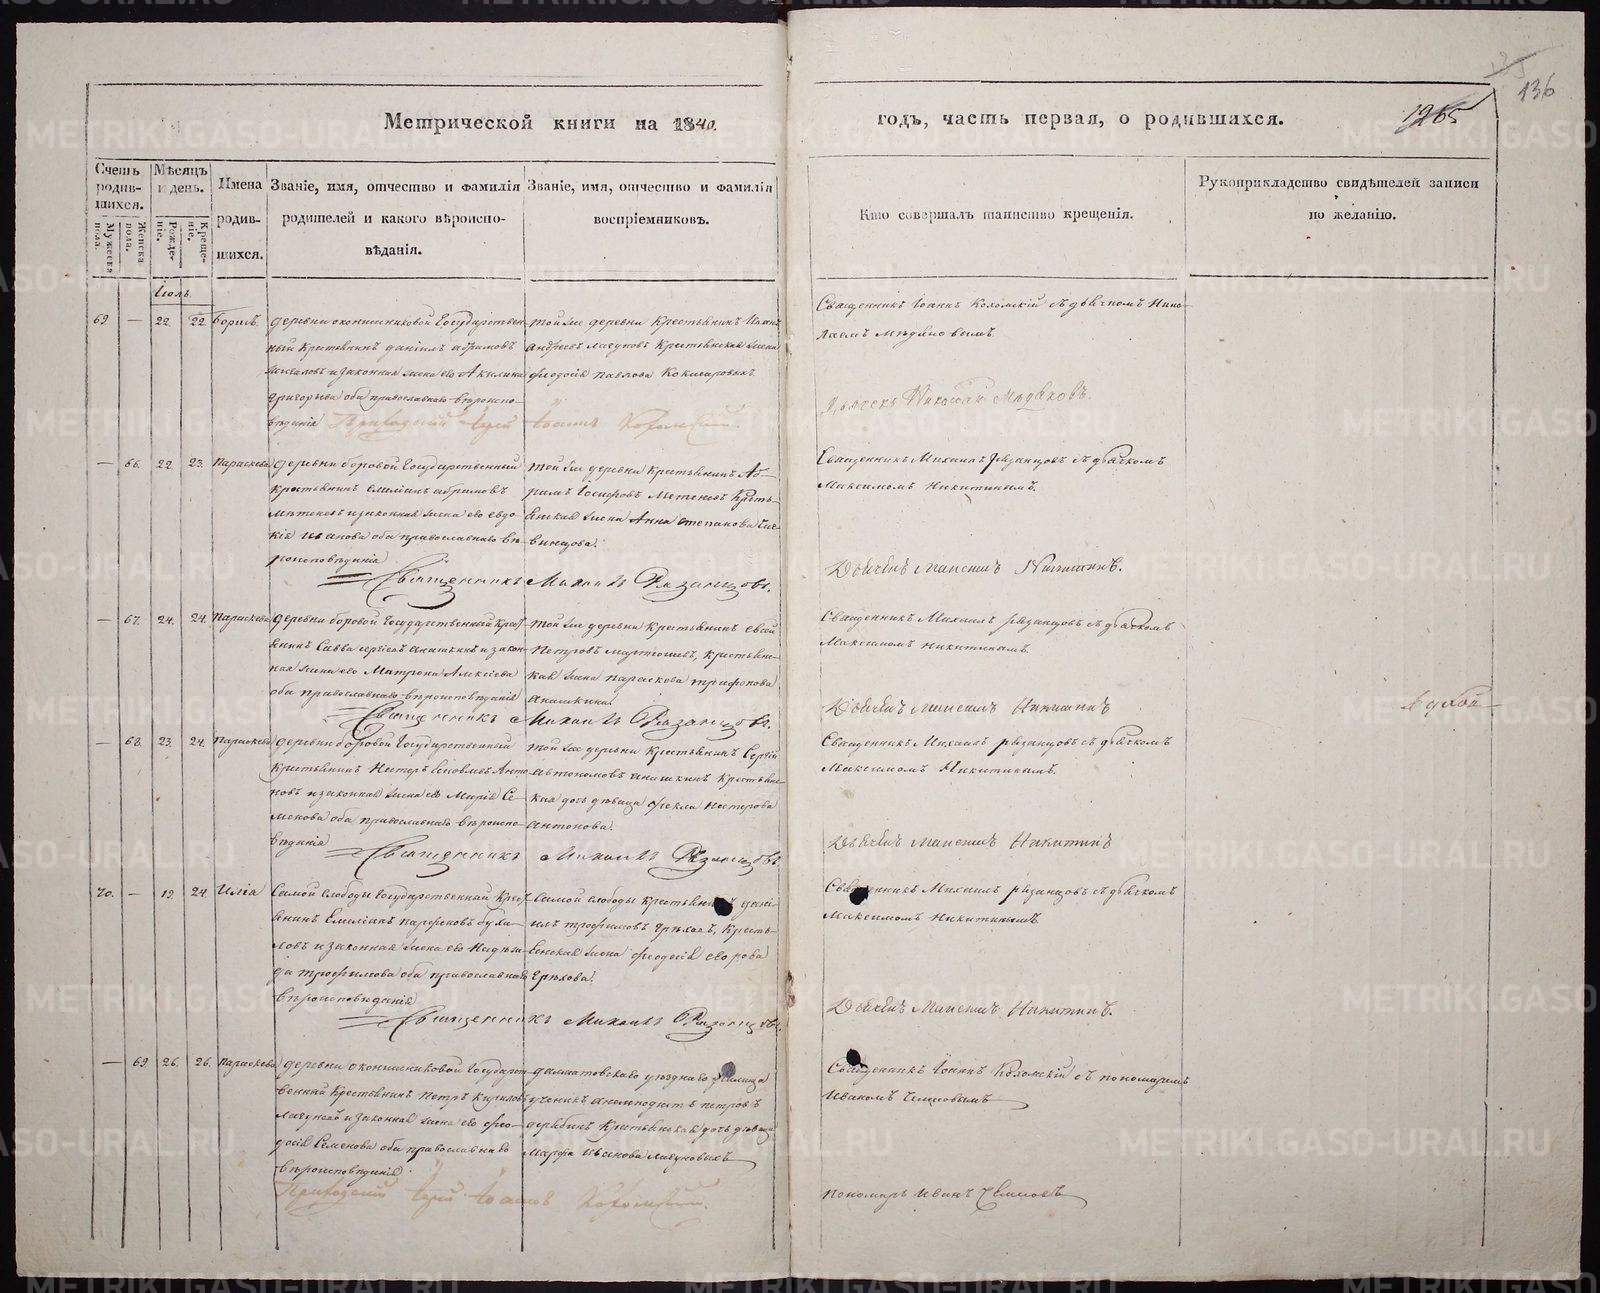 Метрической книги на 1840. годъ, часть первая, о родившихся.
136
1265
Счетъ родив- шихся.
Мѣсяцъ и день.
Имена родив- шихся.
Званіе, имя, отчество и фамилія родителей и какого вѣроиспо- вѣданія.
Званіе, имя, отчество и фамилія воспріемниковъ.
Кто совершалъ таинство крещенія.
Рукоприкладство свидѣтелей записи по желанію.
Мужеска пола.
Женска пола.
Рожде- ніе.
Креще- ніе.
Іюль.
69 — 22. 22. Борисъ.
деревни оконишниковой Государствен-
ный Крестьянинъ даніилъ абрамовъ
и законная жена его Акилина
григорьева оба православнаго вѣроиспо-
вѣданія
Приходскій Іерей Іоаннъ Коломскій.
той же деревни Крестьянинъ Иванъ
андреевъ лагуновъ Крестьянская жена
феодосія павлова
Священникъ Іоаннъ Коломскій съ дьячкомъ Нико-
лаемъ
Николай
— 66. 22. 23. Параскева
деревни боровой Государственный
крестьянинъ емиліанъ абрамовъ
и законная жена его евдо-
кія иванова оба православнаго вѣ-
роисповѣданія
Священникъ Михаилъ Рязанцовъ.
той же деревни крестьянинъ Аб-
рамъ Іосифовъ Кресть-
янская жена Анна степанова
Священникъ Михаилъ Рязанцовъ съ дьячкомъ
Максимомъ Никитинымъ.
Дьячекъ Максимъ Никитинъ.
— 67. 24. 24. Параскева
деревни боровой Государственный Крест-
янинъ Савва сергіевъ аношкинъ и закон-
ная жена его Матрона Алексіева
оба православнаго вѣроисповѣданія
Священникъ Михаилъ Рязанцовъ.
той же деревни Крестьянинъ
Петровъ крестьянс-
кая жена параскева трифонова
аношкина.
Священникъ Михаилъ рязанцовъ съ дьячкомъ
Максимомъ никитинымъ.
Дьячекъ Максимъ Никитинъ
— 68. 23. 24. Параскева
деревни боровой Государственный
Крестьянинъ Несторъ Яковлевъ Анто-
новъ и законная жена его Марія Се-
менова оба православнаго вѣроиспо-
вѣданія
Священникъ Михаилъ Рязанцовъ.
той же деревни Крестьянинъ Сергій
автономовъ аношкинъ Крестьянс-
кая дочь дѣвица Фекла нестерова
антонова.
Священникъ Михаилъ рязанцовъ съ дьячкомъ
Максимомъ Никитинымъ.
Дьячекъ Максимъ Никитинъ
70. — 19. 24. Илія
Самой слободы Государственный Крест-
янинъ Емиліанъ парфеновъ
и законная жена его Надѣж-
да трофимова оба православнаго
вѣроисповѣданія
Священникъ Михаилъ Рязанцовъ.
Самой слободы крестьянинъ дані-
илъ трофимовъ грѣховъ, Кресть-
янская жена феодосія
грѣхова.
Священникъ Михаилъ рязанцовъ съ дьячкомъ
Максимомъ Никитинымъ.
Дьячекъ Максимъ Никитинъ.
— 69. 26. 26. Параскева
деревни оконишниковой Государст-
венный Крестьянинъ Петръ Кириловъ
лагуновъ и законная жена его фео-
досія Семенова оба православнаго
вѣроисповѣданія.
Приходскій Іерей Іоаннъ Коломскій.
далматовскаго уѣзднаго училища
ученикъ петровъ
Крестьянская дочь дѣвица
марфа иванова лагуновыхъ
Священникъ Іоаннъ Коломскій съ пономаремъ
Иваномъ
пономарь Иванъ
METRIKI.GASO-URAL.RU